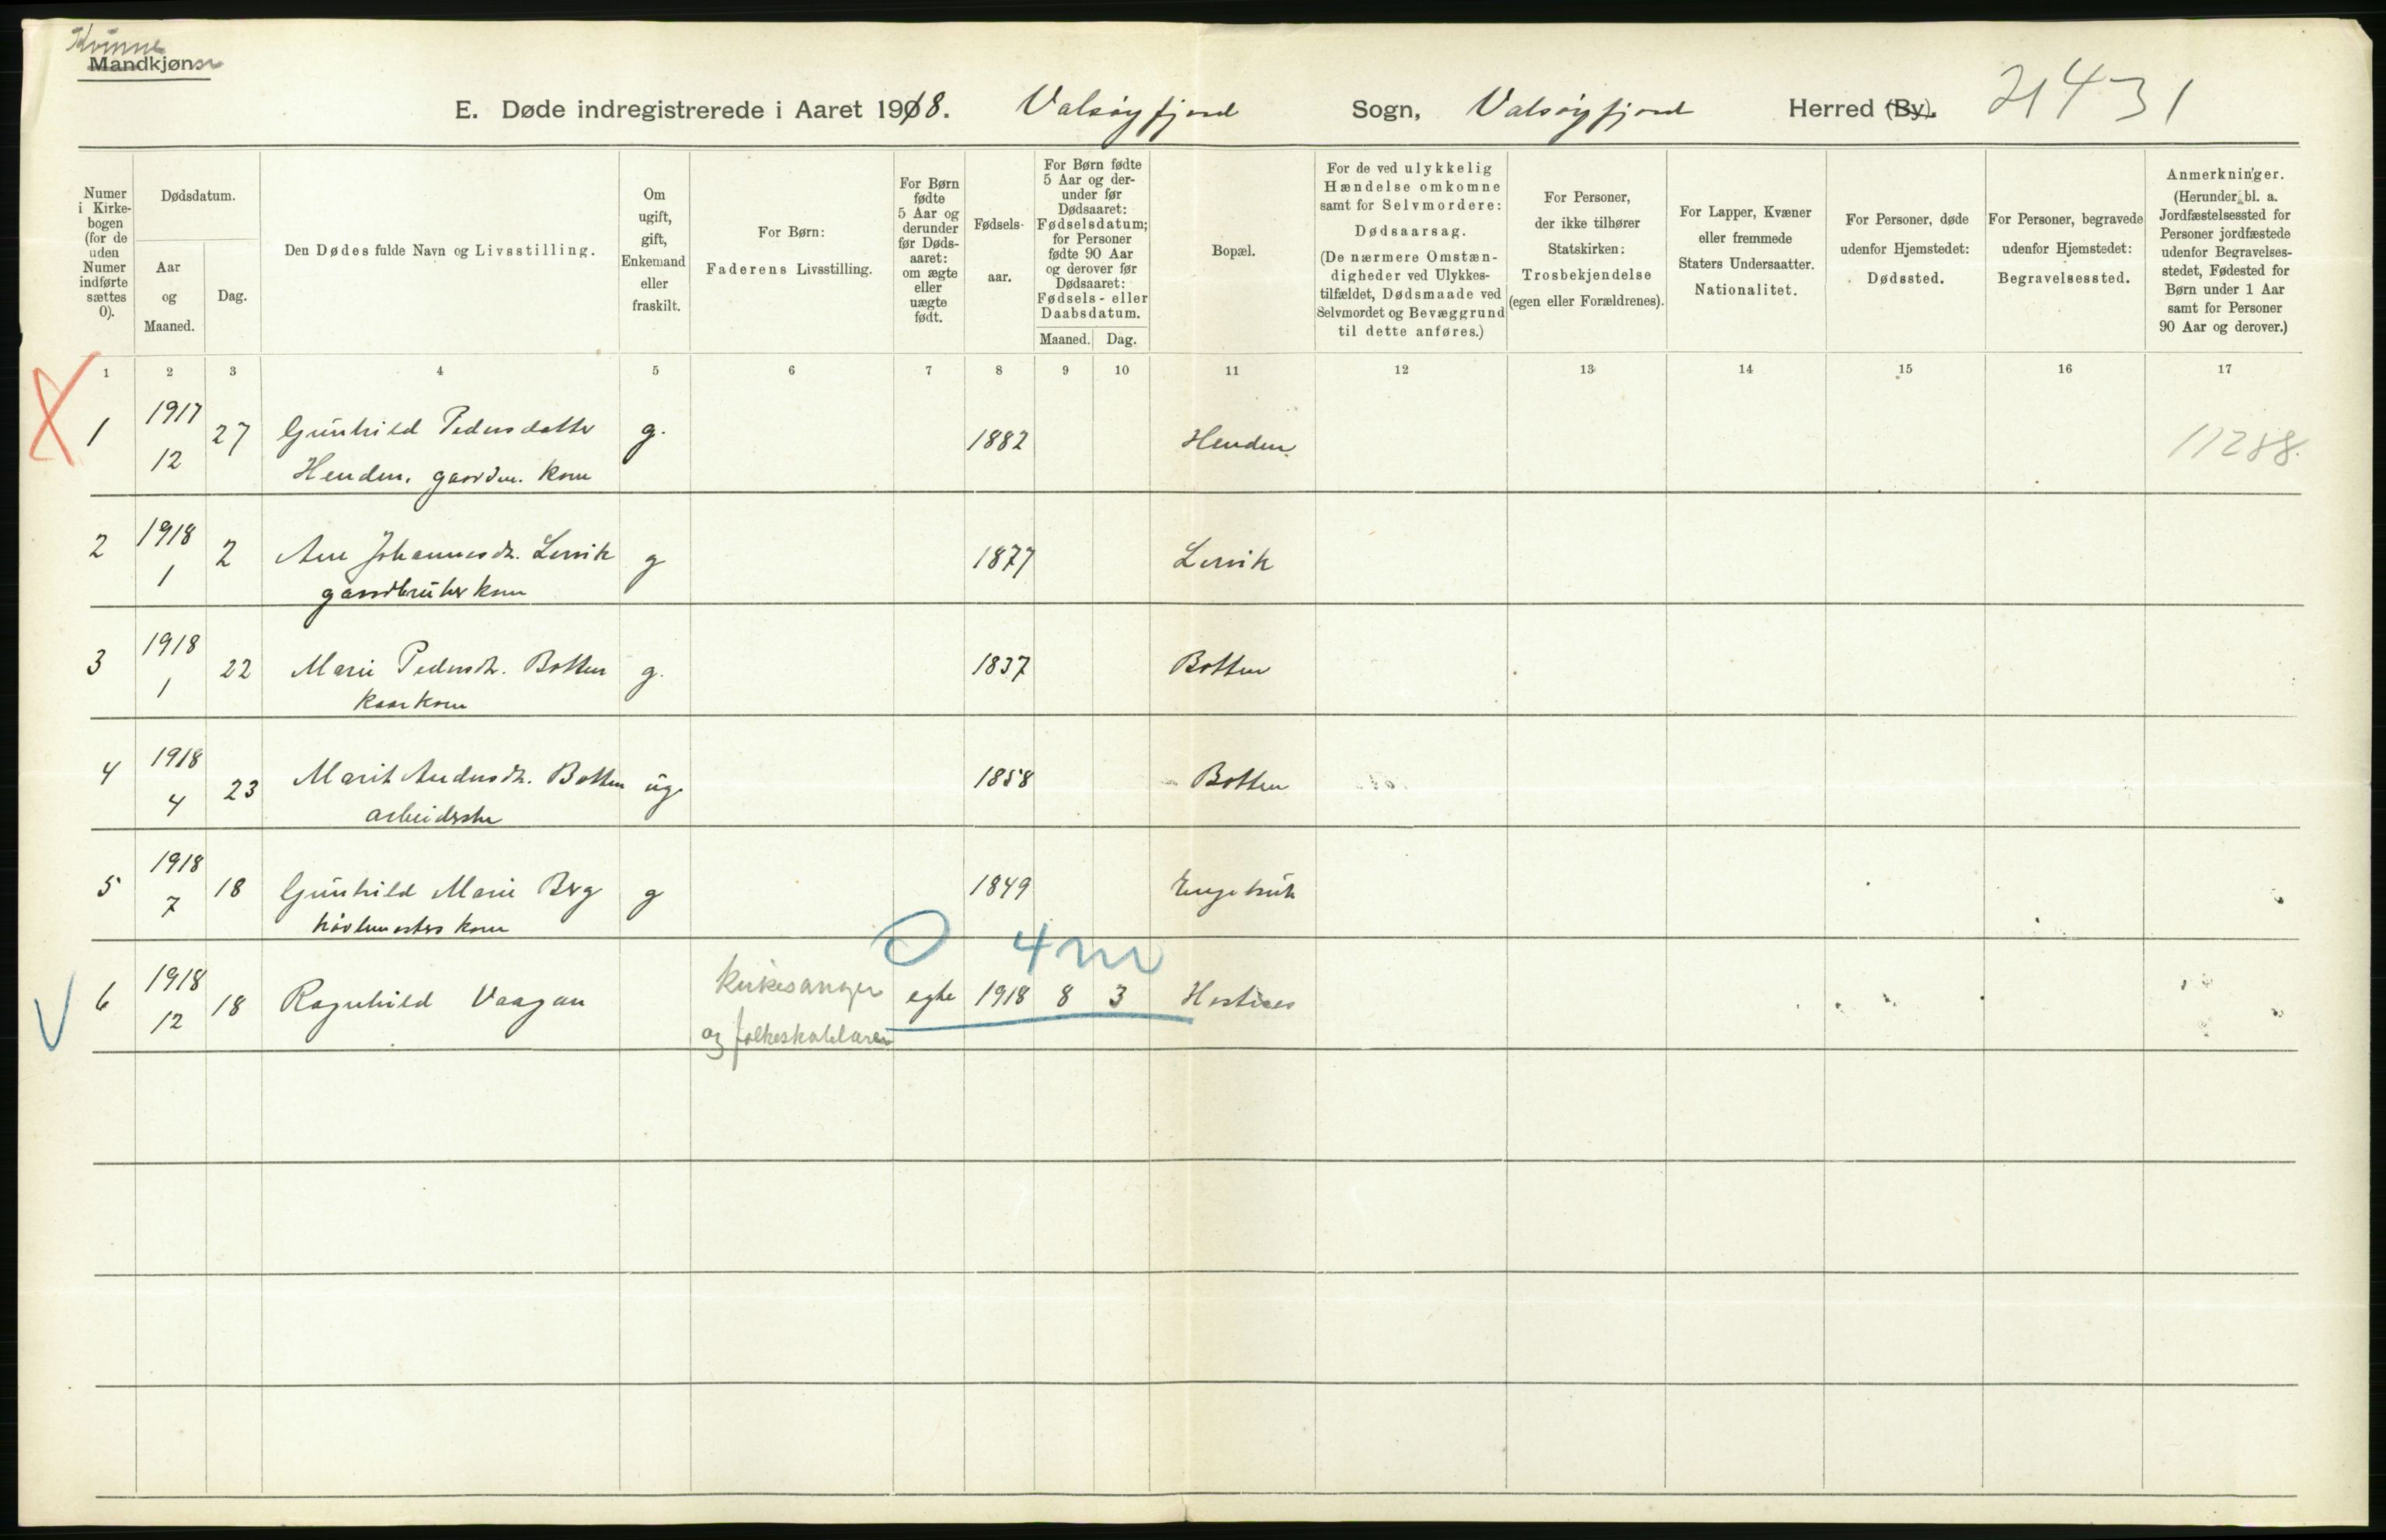 Kvinne
Mandkjøn.
E. Døde indregistrerede i Aaret 1918. Valsøyfjord Sogn, Valsøyfjord Herred (By). 21431
Numer i Kirkebogen (for de uden Numer indførte sættes 0).
Dødsdatum.
Aar og Maaned.
Dag.
Den Dødes fulde Navn og Livsstilling.
Om ugift, gift, Enkemand eller fraskilt.
For Børn:
Faderens Livsstilling.
For Børn fødte 5 Aar og derunder før Dødsaaret: om ægte eller uægte født.
Fødselsaar.
For Børn fødte 5 Aar og derunder før Dødsaaret: Fødselsdatum; for Personer fødte 90 Aar og derover før Dødsaaret: Fødsels- eller Daabsdatum.
Maaned. Dag.
Bopæl.
For de ved ulykkelig Hændelse omkomne samt for Selvmordere: Dødsaarsag.
(De nærmere Omstændigheder ved Ulykkestilfældet, Dødsmaade ved Selvmordet og Bevæggrund til dette anføres.)
For Personer, der ikke tilhører Statskirken: Trosbekjendelse (egen eller Forældrenes).
For Lapper, Kvæner eller fremmede Staters Undersaatter. Nationalitet.
For Personer, døde udenfor Hjemstedet: Dødssted.
For Personer, begravede udenfor Hjemstedet: Begravelsessted.
Anmerkninger.
(Herunder bl. a. Jordfæstelsessted for Personer jordfæstede udenfor Begravelsesstedet, Fødested for Børn under 1 Aar samt for Personer 90 Aar og derover.)
1 2 3 4 5 6 7 8 9 10 11 12 13 14 15 16 17
1 1917 12 27 Gunhild Pedersdatter g. 1882 Henden. 11288.
Henden, gaardm. kone
2 1918 1 2 Ane Johannesdr. Lervik g 1877 Lervik
gaardbruker kone
3 1918 1 22 Marie Pedersdr. Botten g. 1837 Botten
kaarkone
4 1918 4 23 Marit Andersdr. Botten ug. 1858 Botten
arbeiderske
5 1918 7 18 Gunhild Marie Berg g 1849 Engebrik
kone
0 4 m
6 1918 12 18 Ragnhild Vaagan Kirkesanger egte 1918 8 3 Hestnes
og folkeskolelærer